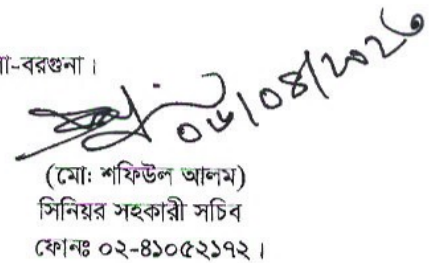 -বরগুনা।
০৬/০৪/২০২৬
(মো: শফিউল আলম)
সিনিয়র সহকারী সচিব
ফোনঃ ০২-৪১০৫২১৭২।